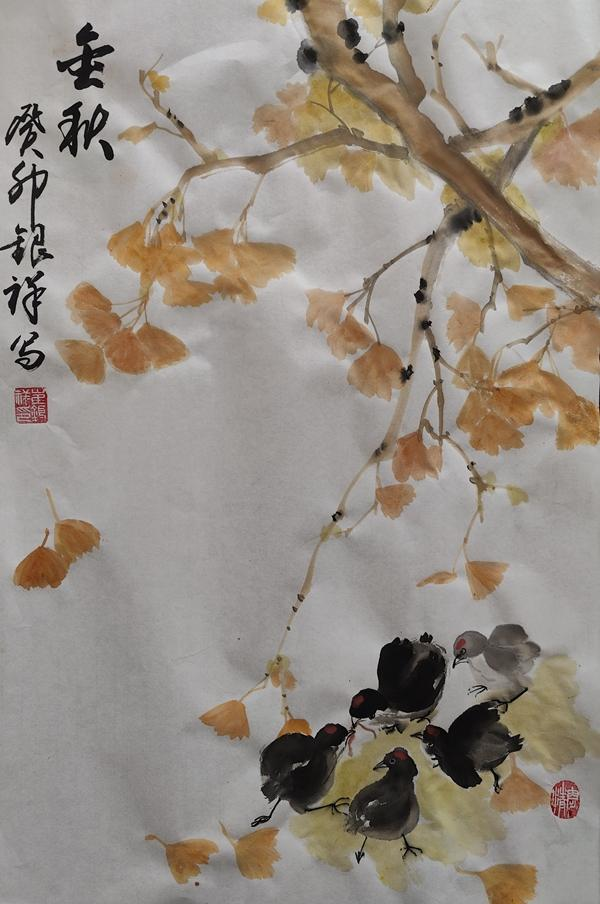 金秋
癸卯银祥写